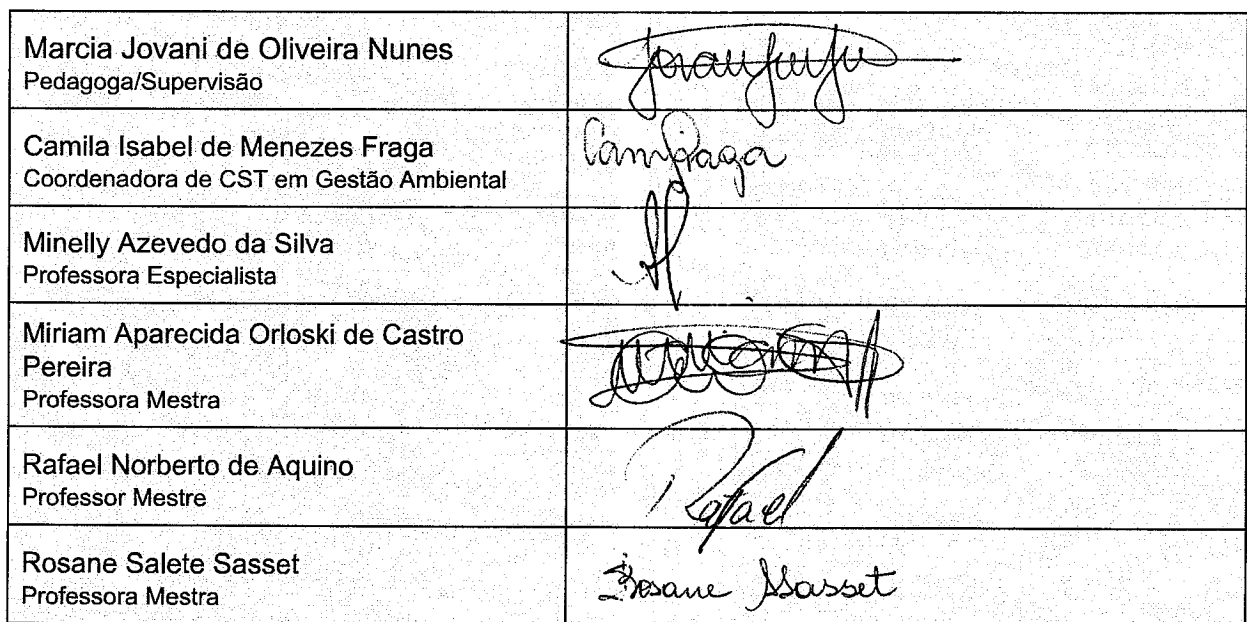 Marcia Jovani de Oliveira Nunes
Pedagoga/Supervisão
Camila Isabel de Menezes Fraga
Coordenadora de CST em Gestão Ambiental
Minelly Azevedo da Silva
Professora Especialista
Miriam Aparecida Orloski de Castro
Pereira
Professora Mestra
Rafael Norberto de Aquino
Professor Mestre
Rafael
Rosane Salete Sasset
Professora Mestra
Rosane Sasset